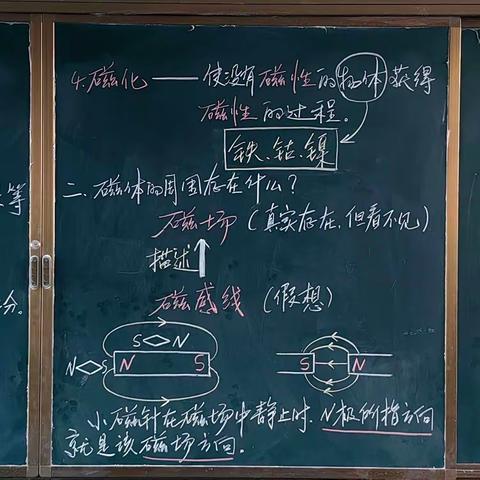 等
分。
4.磁化——使没有磁性的物体获得
磁性的过程。
铁、钴、镍
二.磁体的周围存在什么?
磁场(真实存在,但看不见)
描述
磁感线(假想)
S N
N S N S S N
小磁针在磁场中静止时,N极所指方向
就是该磁场方向。